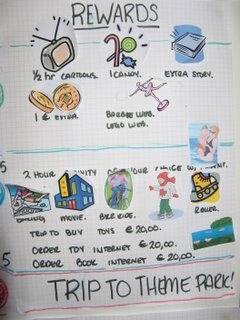 REWARDS
½ hr CARTOONS. 1 CANDY. EXTRA STORY.
1 € EXTRA. BARBIE WEB.
LEGO WEB.
5
2 HOUR
MOVIE. BIKE RIDE. ROLLER.
TRIP TO BUY TOYS € 20,00.
ORDER TOY INTERNET € 20,00.
5 ORDER BOOK INTERNET € 20,00.
TRIP TO THEME PARK!